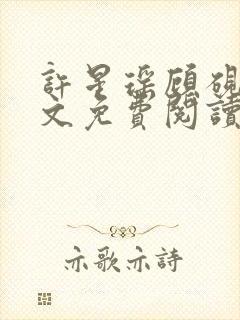 許星琛顧硯
文免費閱讀
亦歌亦詩